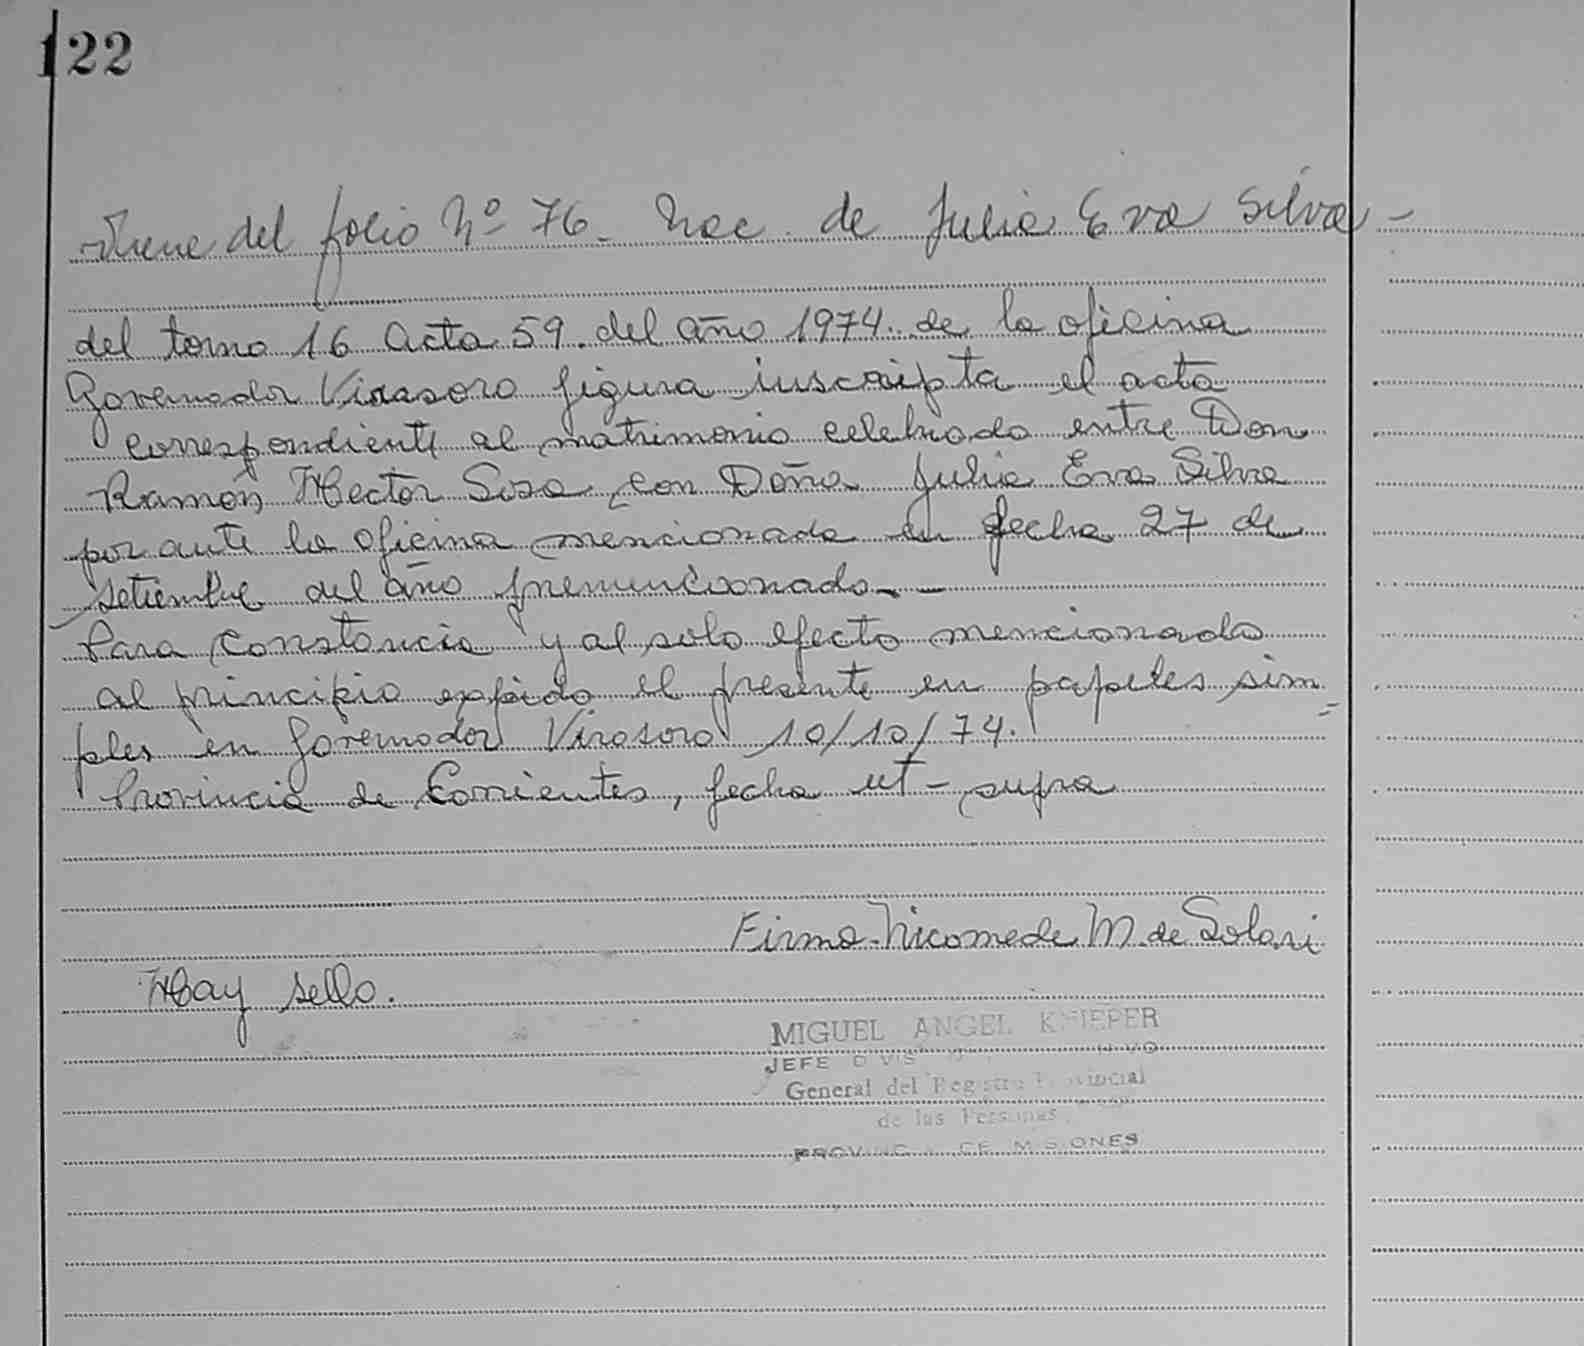 122
Viene del folio Nº 76. Nac. de Julia Eva Silva -
del tomo 16 Acta 59. del año 1974. de la oficina
Governador Virasoro figura inscripta el acta
correspondiente al matrimonio celebrado entre Don
Ramón Hector Sosa, con Doña Julia Eva Silva
por ante la oficina mencionada en fecha 27 de
setiembre del año premencionado. -
Para constancia y al solo efecto mencionado
al principio expido el presente en papeles sim=
ples en Governador Virasoro 10/10/74.
Provincia de Corrientes, fecha ut-supra
Firma. Nicomede M. de Solari
Hay sello.
MIGUEL ANGEL KNIEPER
JEFE
General del Registro Provincial
de las Personas
PROVINCIA DE MISIONES